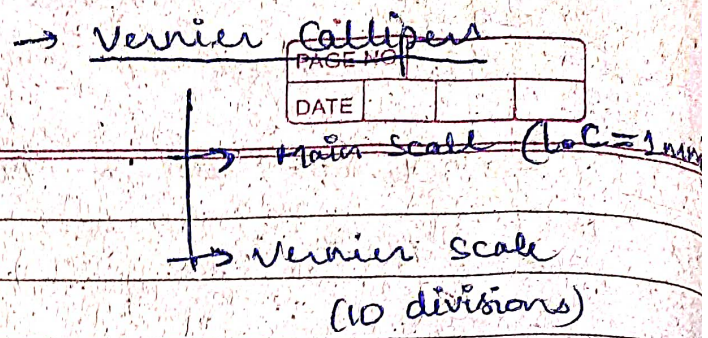 → Vernier Callipers
PAGE NO
DATE
→ Main Scale (L.C=1mm
→ Vernier scale
(10 divisions)